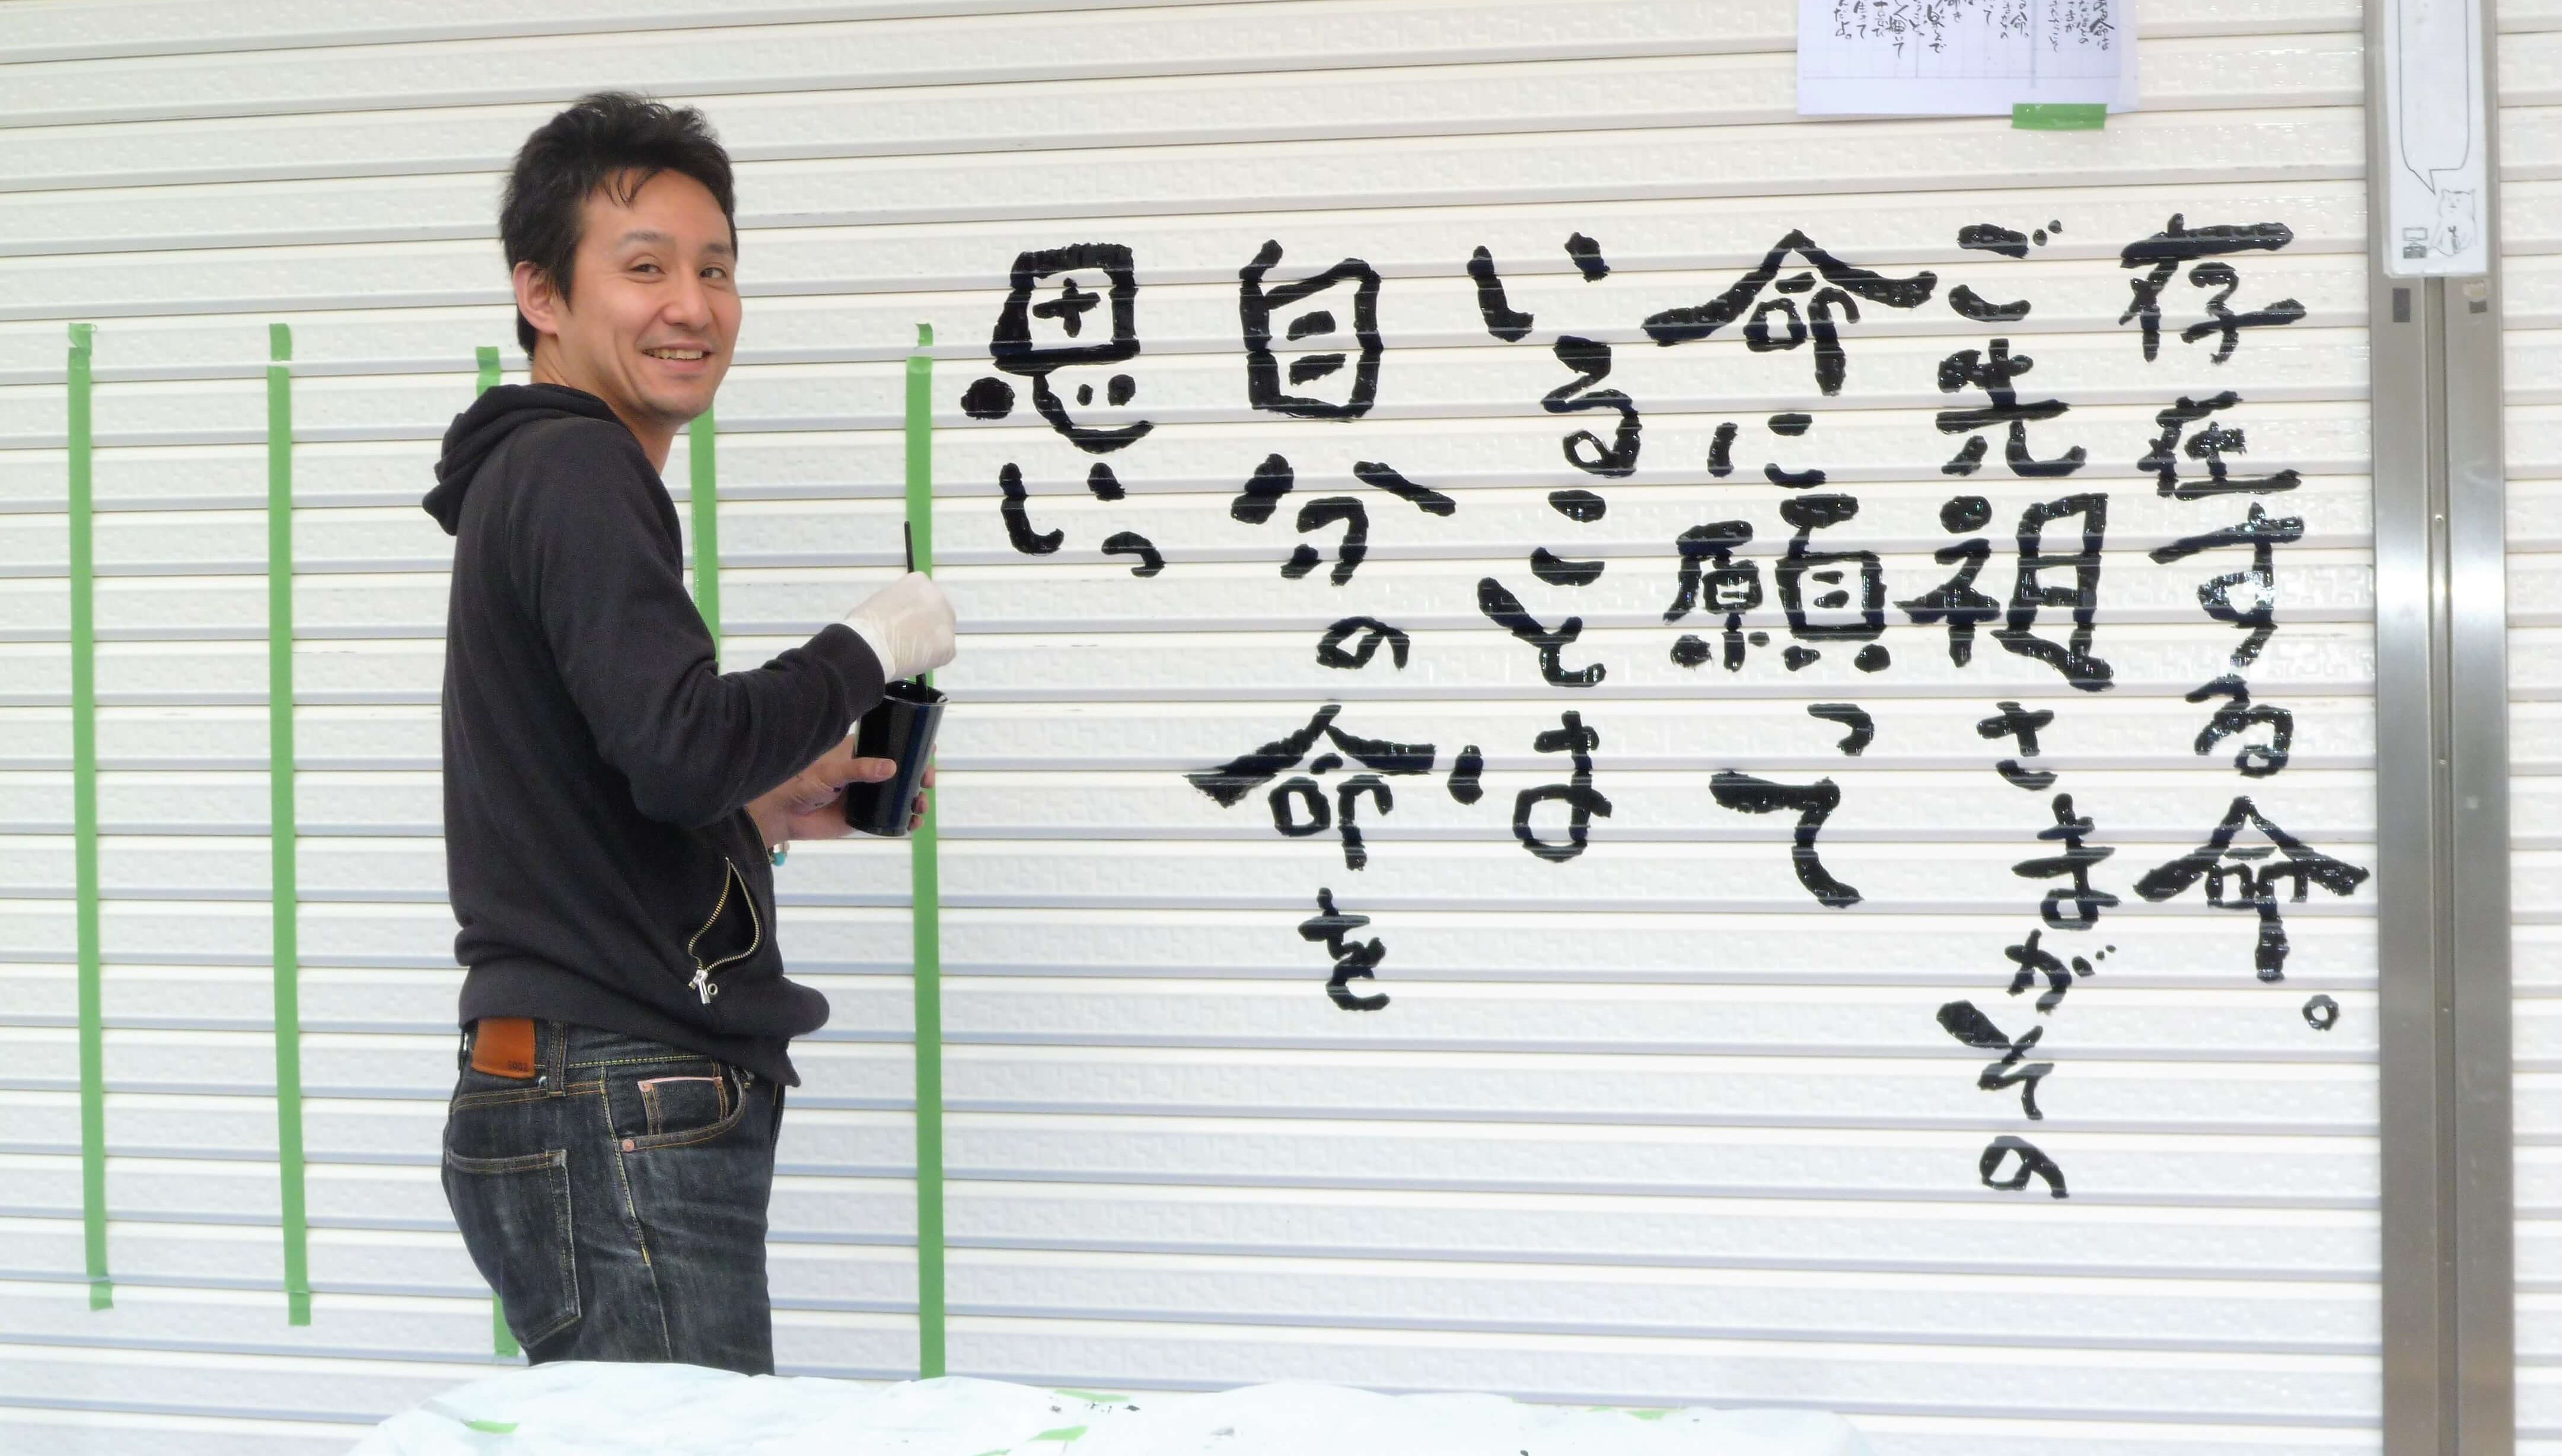 存在する命。
ご先祖さまがその
命に願って
いることは
自分の命を
思いっ